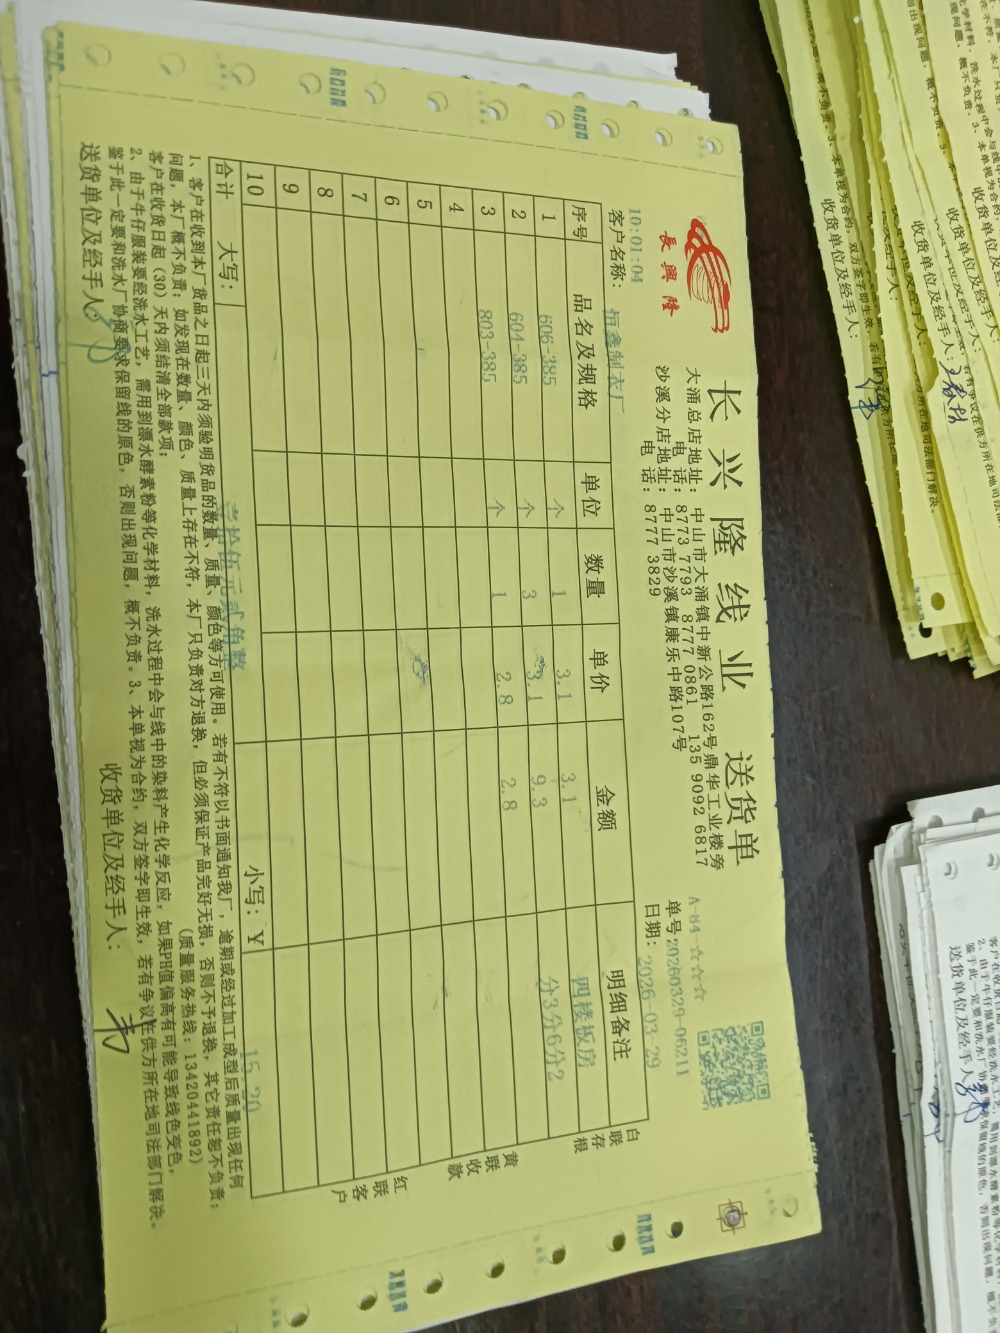 长兴隆线业 送货单
長興隆
大涌总店地址：中山市大涌镇中新公路162号鼎华工业楼旁
电 话：8773 7793 8777 0861 135 9092 6817
沙溪分店地址：中山市沙溪镇康乐中路107号
电 话：8777 3829
A-84-☆☆☆
单号20260329-06211
10:01:04
客户名称：恒鑫制衣厂
日期：2026-03-29
序号 品名及规格 单位 数量 单价 金额 明细备注
1 606-385 个 1 3.1 3.1 四楼板房
2 604-385 个 3 3.1 9.3 分3分6分2
3 803-385 个 1 2.8 2.8
4
5
6
7
8
9
10
合计 大写：壹拾伍元贰角整 小写：¥ 15.20
白联存根
黄联收款
红联客户
1、客户在收到本厂货品之日起三天内须验明货品的数量、质量、颜色等方可使用。若有不符以书面通知我厂，逾期或经过加工成型后质量出现任何
问题，本厂概不负责；如发现在数量、颜色、质量上存在不符，本厂只负责对方退换，但必须保证产品完好无损，否则不予退换，其它责任恕不负责；
客户在收货日起（30）天内须结清全部款项；
（质量服务热线：13420441892）
2、由于牛仔服装要经洗水工艺，需用到漂水酵素粉等化学材料，洗水过程中会与线中的染料产生化学反应，如果PH值偏高有可能导致线色变色，
鉴于此一定要和洗水厂协商要求保留线的原色，否则出现问题，概不负责。3、本单视为合约，双方签字即生效，若有争议在供方所在地司法部门解决。
送货单位及经手人：
收货单位及经手人：
收货单位及经手人：
收货单位及经手人：
收货单位及经手人：
送货单位及经手人